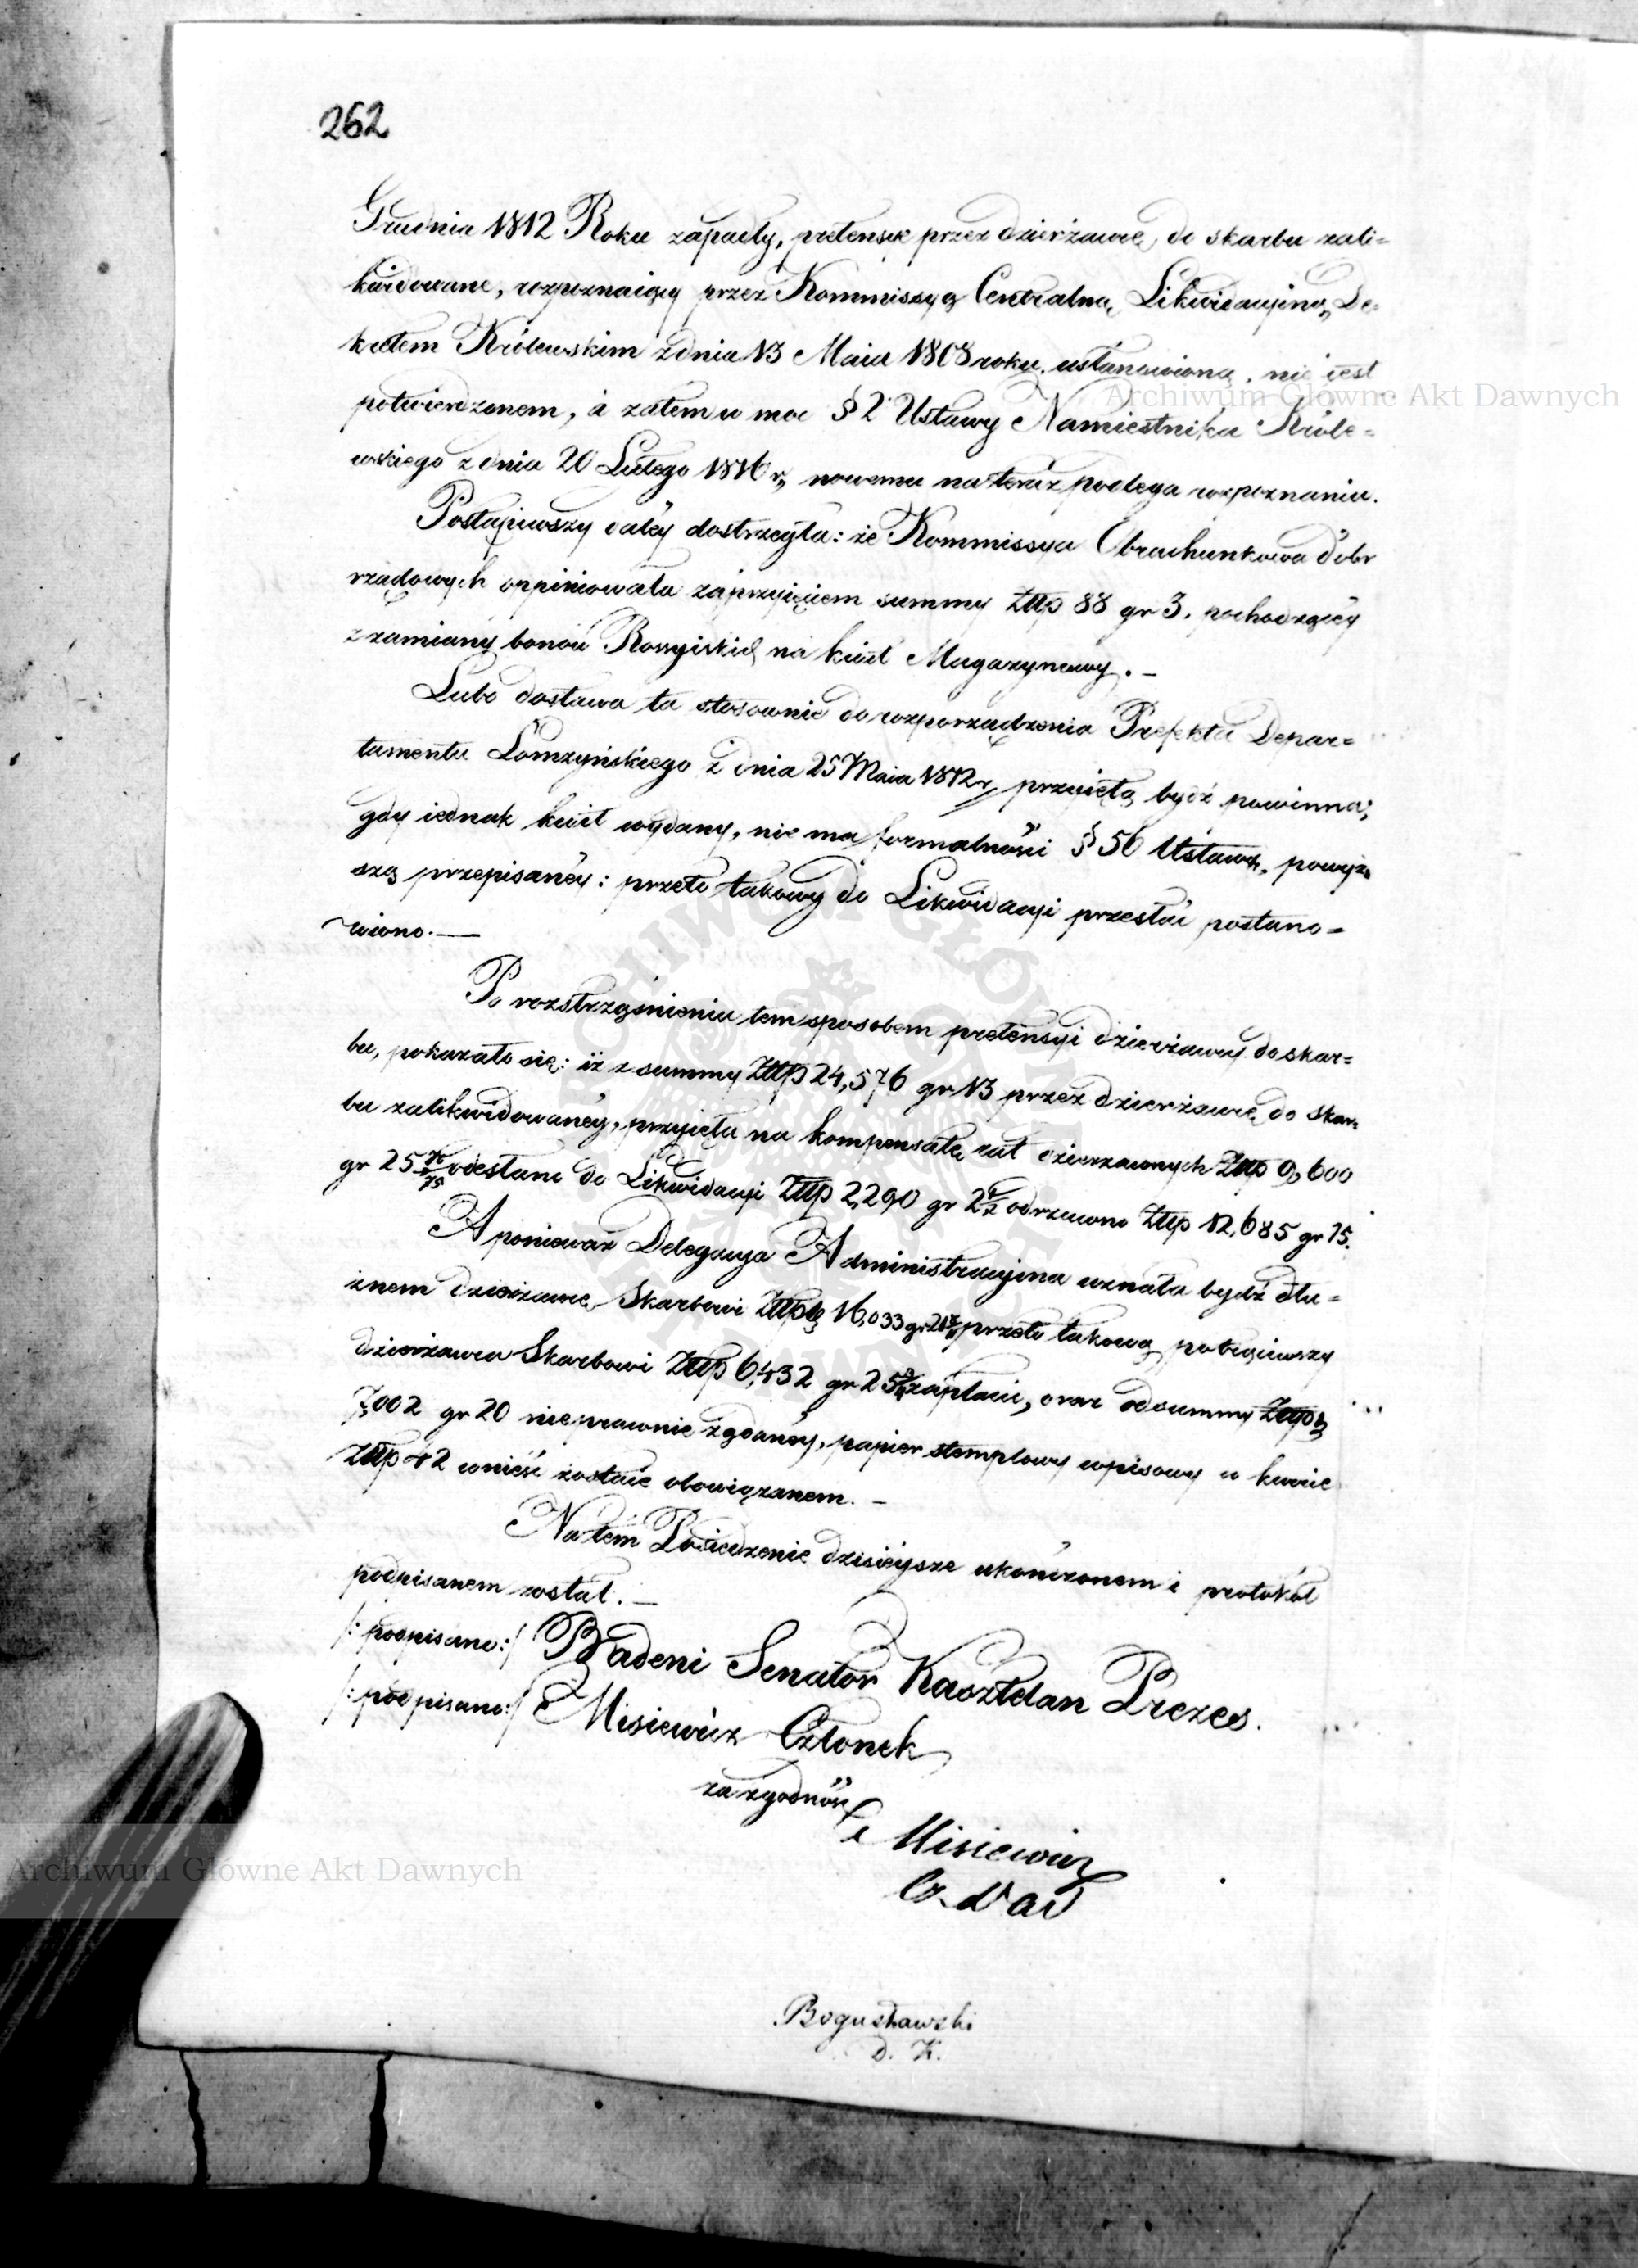 262
Grudnia 1812 Roku zapadły, pretensye przez dzierżawcę do skarbu zali=
kwidowane, rozpoznaiący przez Kommissyą Centralną Likwidacyiną De-
kretem Królewskim z dnia 13 Maia 1808 roku ustanowioną, nie iest
potwierdzonem, a zatem w moc § 2 Ustawy Namiestnika Króle=
wskiego z dnia 20 Lutego 1816 r, nowemu na teraz podlega rozpoznaniu.
Postąpiwszy daley dostrzegła: że Kommissya Obrachunkowa dóbr
rządowych oppiniowała za przyięciem summy Złłp 88 gr 3. pochodzącey
z zamiany bonów Rossyiskich na kwit Magazynowy. —
Lubo dostawa ta stosownie do rozporządzenia Prefekta Depar=
tamentu Łomzyńskiego z dnia 25 Maia 1812 r, przyiętą bydź powinna;
gdy iednak kwit wydany, nie ma formalności § 56 Ustawą powyż-
szą przepisaney: przeto takowy do Likwidacyi przesłać postano=
wiono. —
Po rozstrzygnieniu tem sposobem pretensyi dzierżawcy do skar=
bu, pokazało się: iż z summy Złłp 24,576 gr 13 przez dzierżawcę do skar=
bu zalikwidowaney, przyięta na kompensatę rat dzierzawnych Złłp 9,600
gr 25 odesłano do Likwidacyi Złłp 2,290 gr 2 1/2 odrzucono Złłp 12,685 gr 15.
A ponieważ Delegacya Administracyjna uznała bydź dłu=
żnem dzierżawcę Skarbowi Złłp 16,033 gr przeto takową potrąciwszy
dzierżawca Skarbowi Złłp 6,432 gr 25 zapłacić, oraz od summy Złłp
7,002 gr 20 nieprawnie żądaney, papier stemplowy wpisowy w kwocie
Złłp 42 wnieść zostaie obowiązanem. —
Na tem Posiedzenie dzisieysze ukończonem i protokół
podpisanem został. —
/: podpisano:/ Badeni Senator Kasztelan Prezes.
/: podpisano:/ Misiewicz Członek
za zgodność
Misiewicz
Bogusławski
D. K.
Archiwum Główne Akt Dawnych
Archiwum Główne Akt Dawnych